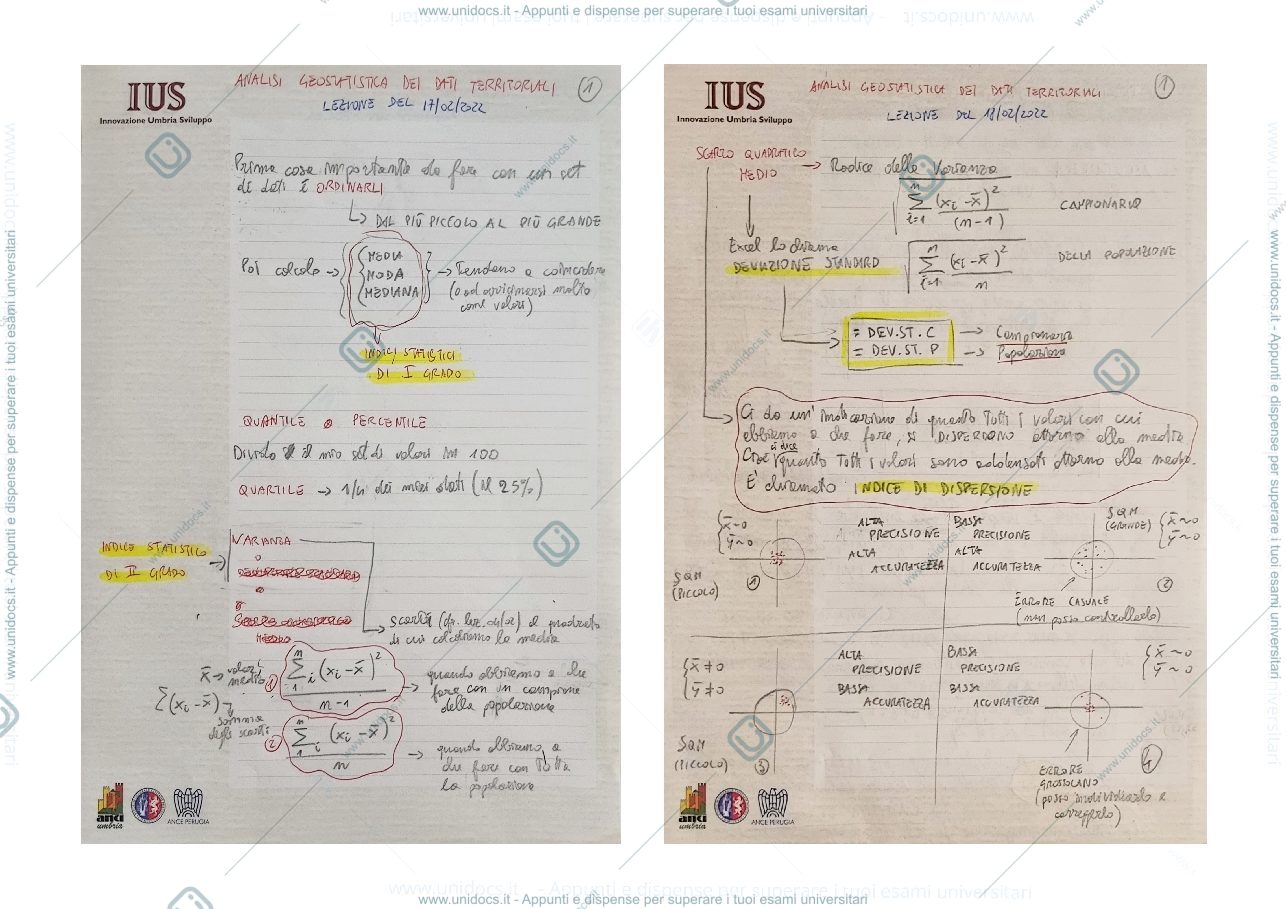 www.unidocs.it - Appunti e dispense per superare i tuoi esami universitari
IUS
Innovazione Umbria Sviluppo
ANALISI GEOSTATISTICA DEI DATI TERRITORIALI
1
LEZIONE DEL 17/02/2022
Prima cosa importante da fare con un set
di dati è ORDINARLI
DAL PIÙ PICCOLO AL PIÙ GRANDE
Poi calcolo → MEDIA
MODA
MEDIANA
→ Tendono a coincidere
(o ad avvicinarsi molto
come valori)
INDICI STATISTICI
DI I GRADO
QUANTILE o PERCENTILE
Divido il mio set di valori in 100
QUARTILE → 1/4 dei miei dati (il 25%)
INDICE STATISTICO
DI II GRADO
VARIANZA
o
MEDIO
scarti al quadrato
di cui calcoliamo la media
x̄ → valori
medio
① Σ i (xi - x̄)²
n
1
n-1
→ quando abbiamo a che
fare con un campione
della popolazione
Σ(xi - x̄) → somma
degli scarti
② Σ i (xi - x̄)²
n
1
n
→ quando abbiamo a
che fare con tutta
la popolazione
anci
umbria
ANCE PERUGIA
IUS
Innovazione Umbria Sviluppo
ANALISI GEOSTATISTICA DEI DATI TERRITORIALI
1
LEZIONE DEL 18/02/2022
SCARTO QUADRATICO
MEDIO
→ Radice della Varianza
√ Σ (xi - x̄)²
n
i=1
(n-1)
CAMPIONARIA
Excel lo chiama
DEVIAZIONE STANDARD
√ Σ (xi - x̄)²
n
i=1
n
DELLA POPOLAZIONE
= DEV.ST.C → Campionaria
= DEV.ST.P → Popolazione
Ci da un'indicazione di quanto tutti i valori con cui
abbiamo a che fare, si DISPERDONO attorno alla media.
Cioè ci dice quanto tutti i valori sono addensati attorno alla media.
È chiamato INDICE DI DISPERSIONE
x̄~0
ȳ~0
SQM
(PICCOLO)
1
ALTA
PRECISIONE
ALTA
ACCURATEZZA
BASSA
PRECISIONE
ALTA
ACCURATEZZA
SQM
(GRANDE)
x̄~0
ȳ~0
2
ERRORE CASUALE
(non posso controllarlo)
x̄≠0
ȳ≠0
SQM
(PICCOLO)
3
ALTA
PRECISIONE
BASSA
ACCURATEZZA
BASSA
PRECISIONE
BASSA
ACCURATEZZA
x̄~0
ȳ~0
4
ERRORE
GROSSOLANO
(posso individuarlo e
correggerlo)
anci
umbria
ANCE PERUGIA
www.unidocs.it - Appunti e dispense per superare i tuoi esami universitari